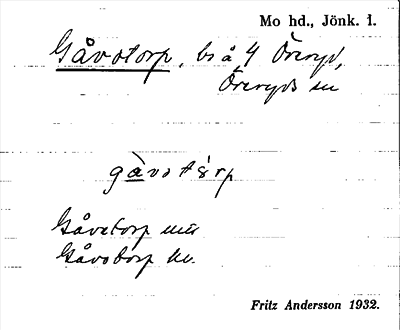 Mo hd., Jönk. l.
Gåvotorp, bs å 4 Öreryd,
Öreryds sn
gàvotórp
Gåvetorp
Gåvotorp hv.
Fritz Andersson 1932.